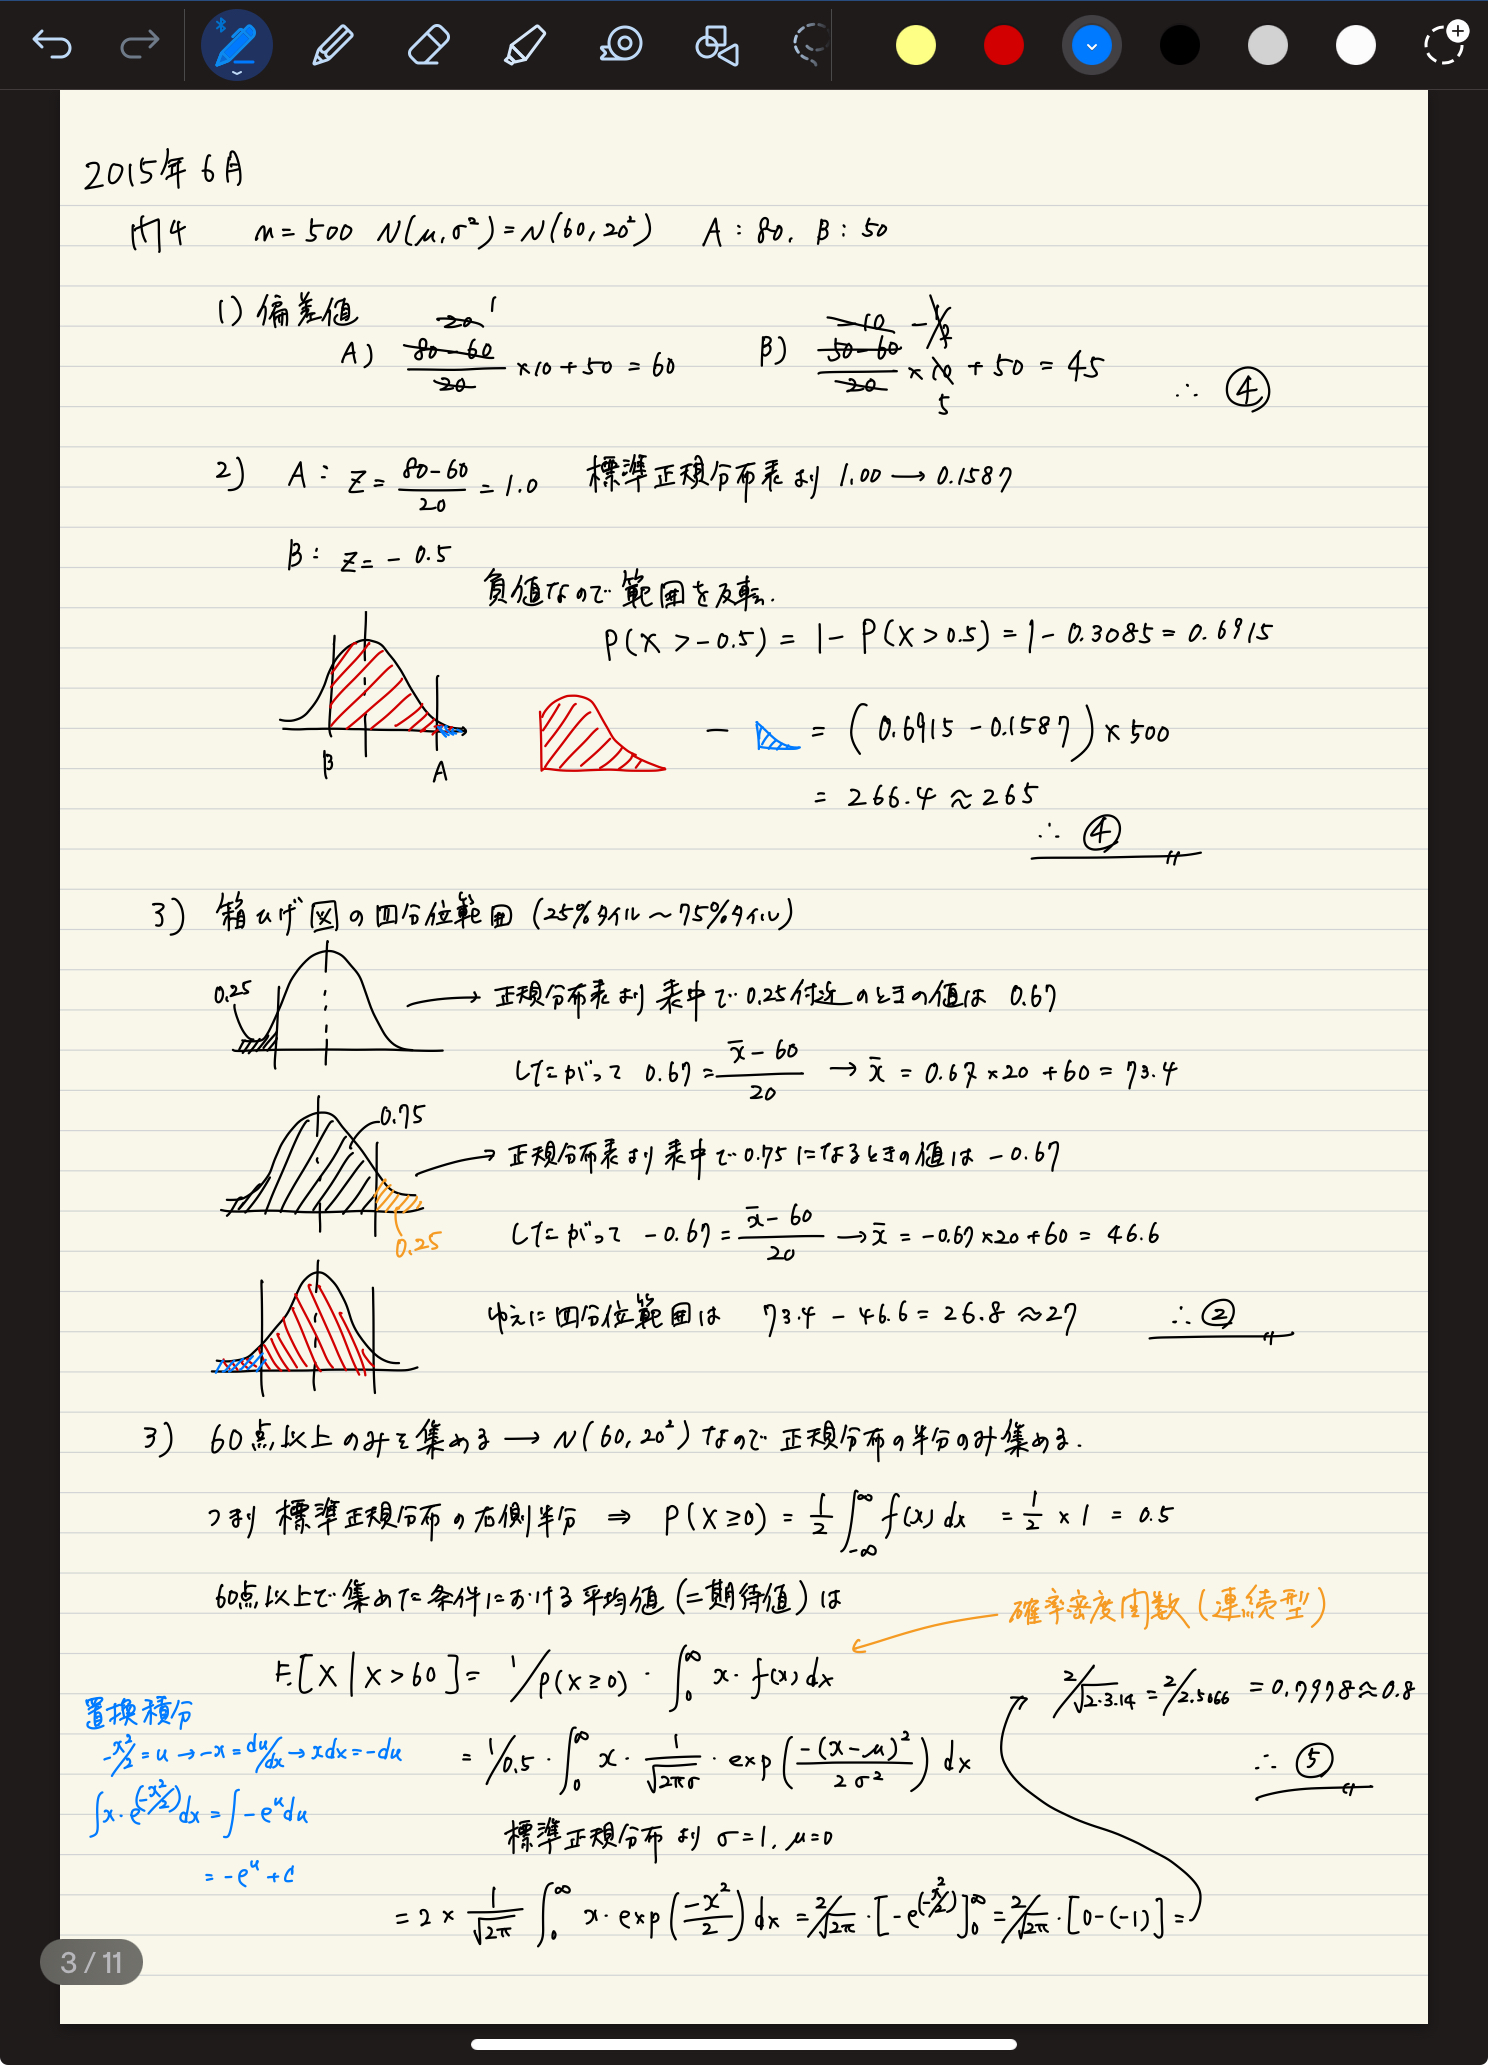 2015年6月
問4 n=500 N(μ,σ²)=N(60,20²) A:80, B:50
1) 偏差値
A) (80-60)/20 ×10+50=60 20 1
B) (50-60)/20 ×10+50=45 -10 -1/2 5 ∴ ④
2) A: Z=(80-60)/20=1.0 標準正規分布表より 1.00→0.1587
B: Z=-0.5
負値なので範囲を反転.
P(X>-0.5)=1-P(X>0.5)=1-0.3085=0.6915
B A
- =(0.6915-0.1587)×500
=266.4≈265
∴ ④
3) 箱ひげ図の四分位範囲(25%タイル~75%タイル)
0.25 → 正規分布表より 表中で0.25付近のときの値は 0.67
したがって 0.67=(x̄-60)/20 → x̄=0.67×20+60=73.4
0.75 → 正規分布表より 表中で0.75になるときの値は -0.67
0.25
したがって -0.67=(x̄-60)/20 → x̄=-0.67×20+60=46.6
ゆえに四分位範囲は 73.4-46.6=26.8≈27 ∴②
3) 60点以上のみを集める → N(60,20²)なので正規分布の半分のみ集める.
つまり 標準正規分布の右側半分 ⇒ P(X≥0)=1/2∫_{-∞}^{∞} f(x)dx =1/2×1=0.5
60点以上で集めた条件における平均値(=期待値)は
確率密度関数(連続型)
E[X|X>60]=1/P(X≥0)・∫_0^∞ x・f(x)dx
2/√2・3.14=2/2.5066=0.7978≈0.8
∴ ⑤
置換積分
-x²/2=u→-x=du/dx→xdx=-du
∫x・e^(-x²/2)dx=∫-e^u du
=-e^u+C
=1/0.5・∫_0^∞ x・1/√2πσ・exp(-(x-μ)²/2σ²)dx
標準正規分布より σ=1, μ=0
=2×1/√2π ∫_0^∞ x・exp(-x²/2)dx=2/√2π・[-e^(-x²/2)]_0^∞=2/√2π・[0-(-1)]=
3 / 11